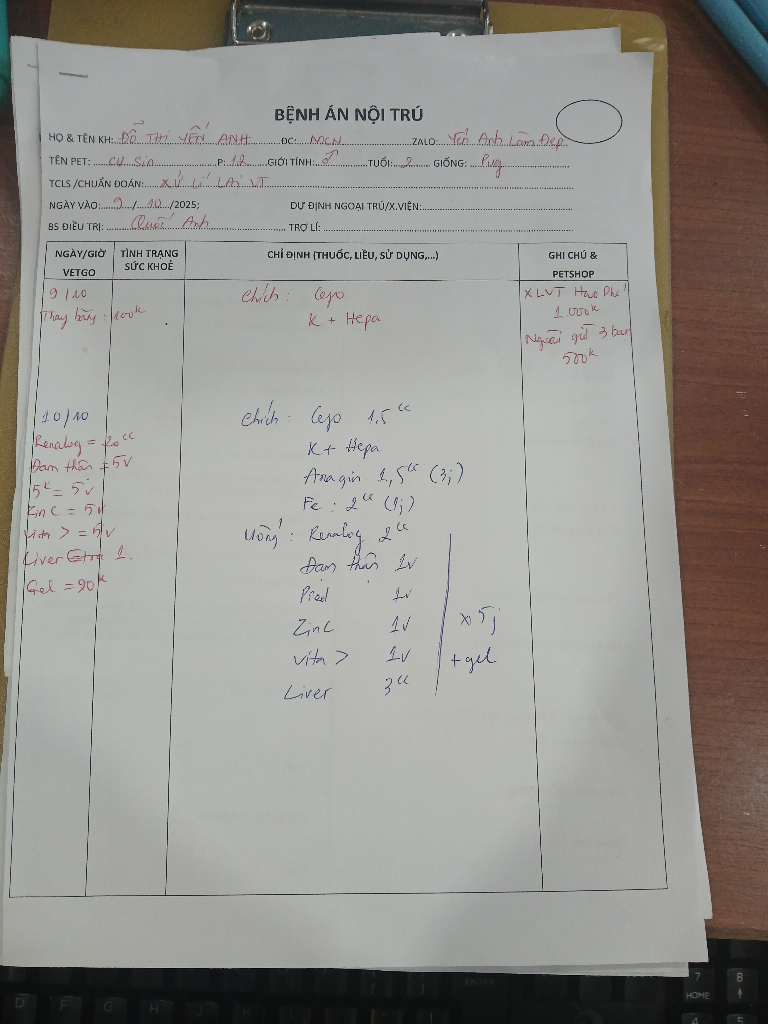 BỆNH ÁN NỘI TRÚ
HỌ & TÊN KH: ĐỖ THỊ YẾN ANH ĐC: MCN ZALO: Yến Anh Làm Đẹp
TÊN PET: cu Sin P: 12 GIỚI TÍNH: ♂ TUỔI: 2 GIỐNG: Pug
TCLS /CHUẨN ĐOÁN: XỬ LÍ LẠI VT
NGÀY VÀO: 9 / 10 /2025; DỰ ĐỊNH NGOẠI TRÚ/X.VIỆN:
BS ĐIỀU TRỊ: Quốc Anh TRỢ LÍ:
NGÀY/GIỜ VETGO
TÌNH TRẠNG SỨC KHOẺ
CHỈ ĐỊNH (THUỐC, LIỀU, SỬ DỤNG,...)
GHI CHÚ & PETSHOP
9/10
Thay băng: 100k
Chích: Cejo
K + Hepa
XLVT Hao Phí
1.000k
Người giữ 3 ban
500k
10/10
Renalog = 20cc
Đam thận = 5v
5k = 5v
Zin C = 5v
Vita > = 5v
Liver Extra 1.
Gel = 90k
Chích: Cejo 1,5cc
K + Hepa
Anagin 1,5cc (3j)
Fe: 2cc (1j)
Uống: Renalog 2cc
Đam thận 1v
Pred 1v
Zin C 1v
Vita > 1v
Liver 3cc
x 5j
+ gel